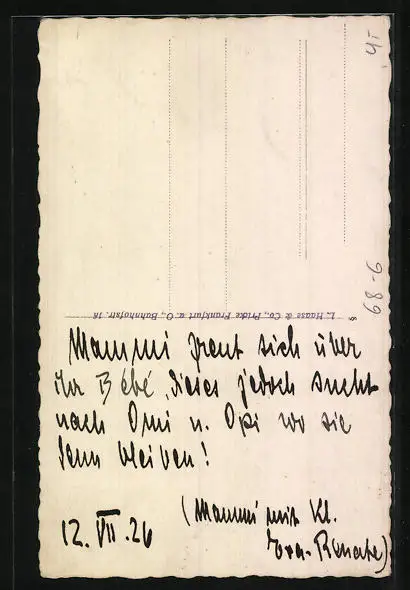 4т
68-6
L. Haase & Co., Pricke Frankfurt a. O., Bahnhofstr. 18
Mammi freut sich über
ihr Bébé, dieses jedoch sucht
nach Omi u. Opi wo sie
denn bleiben!
(Mammi mit Kl.
Eva-Renate)
12. VII. 26